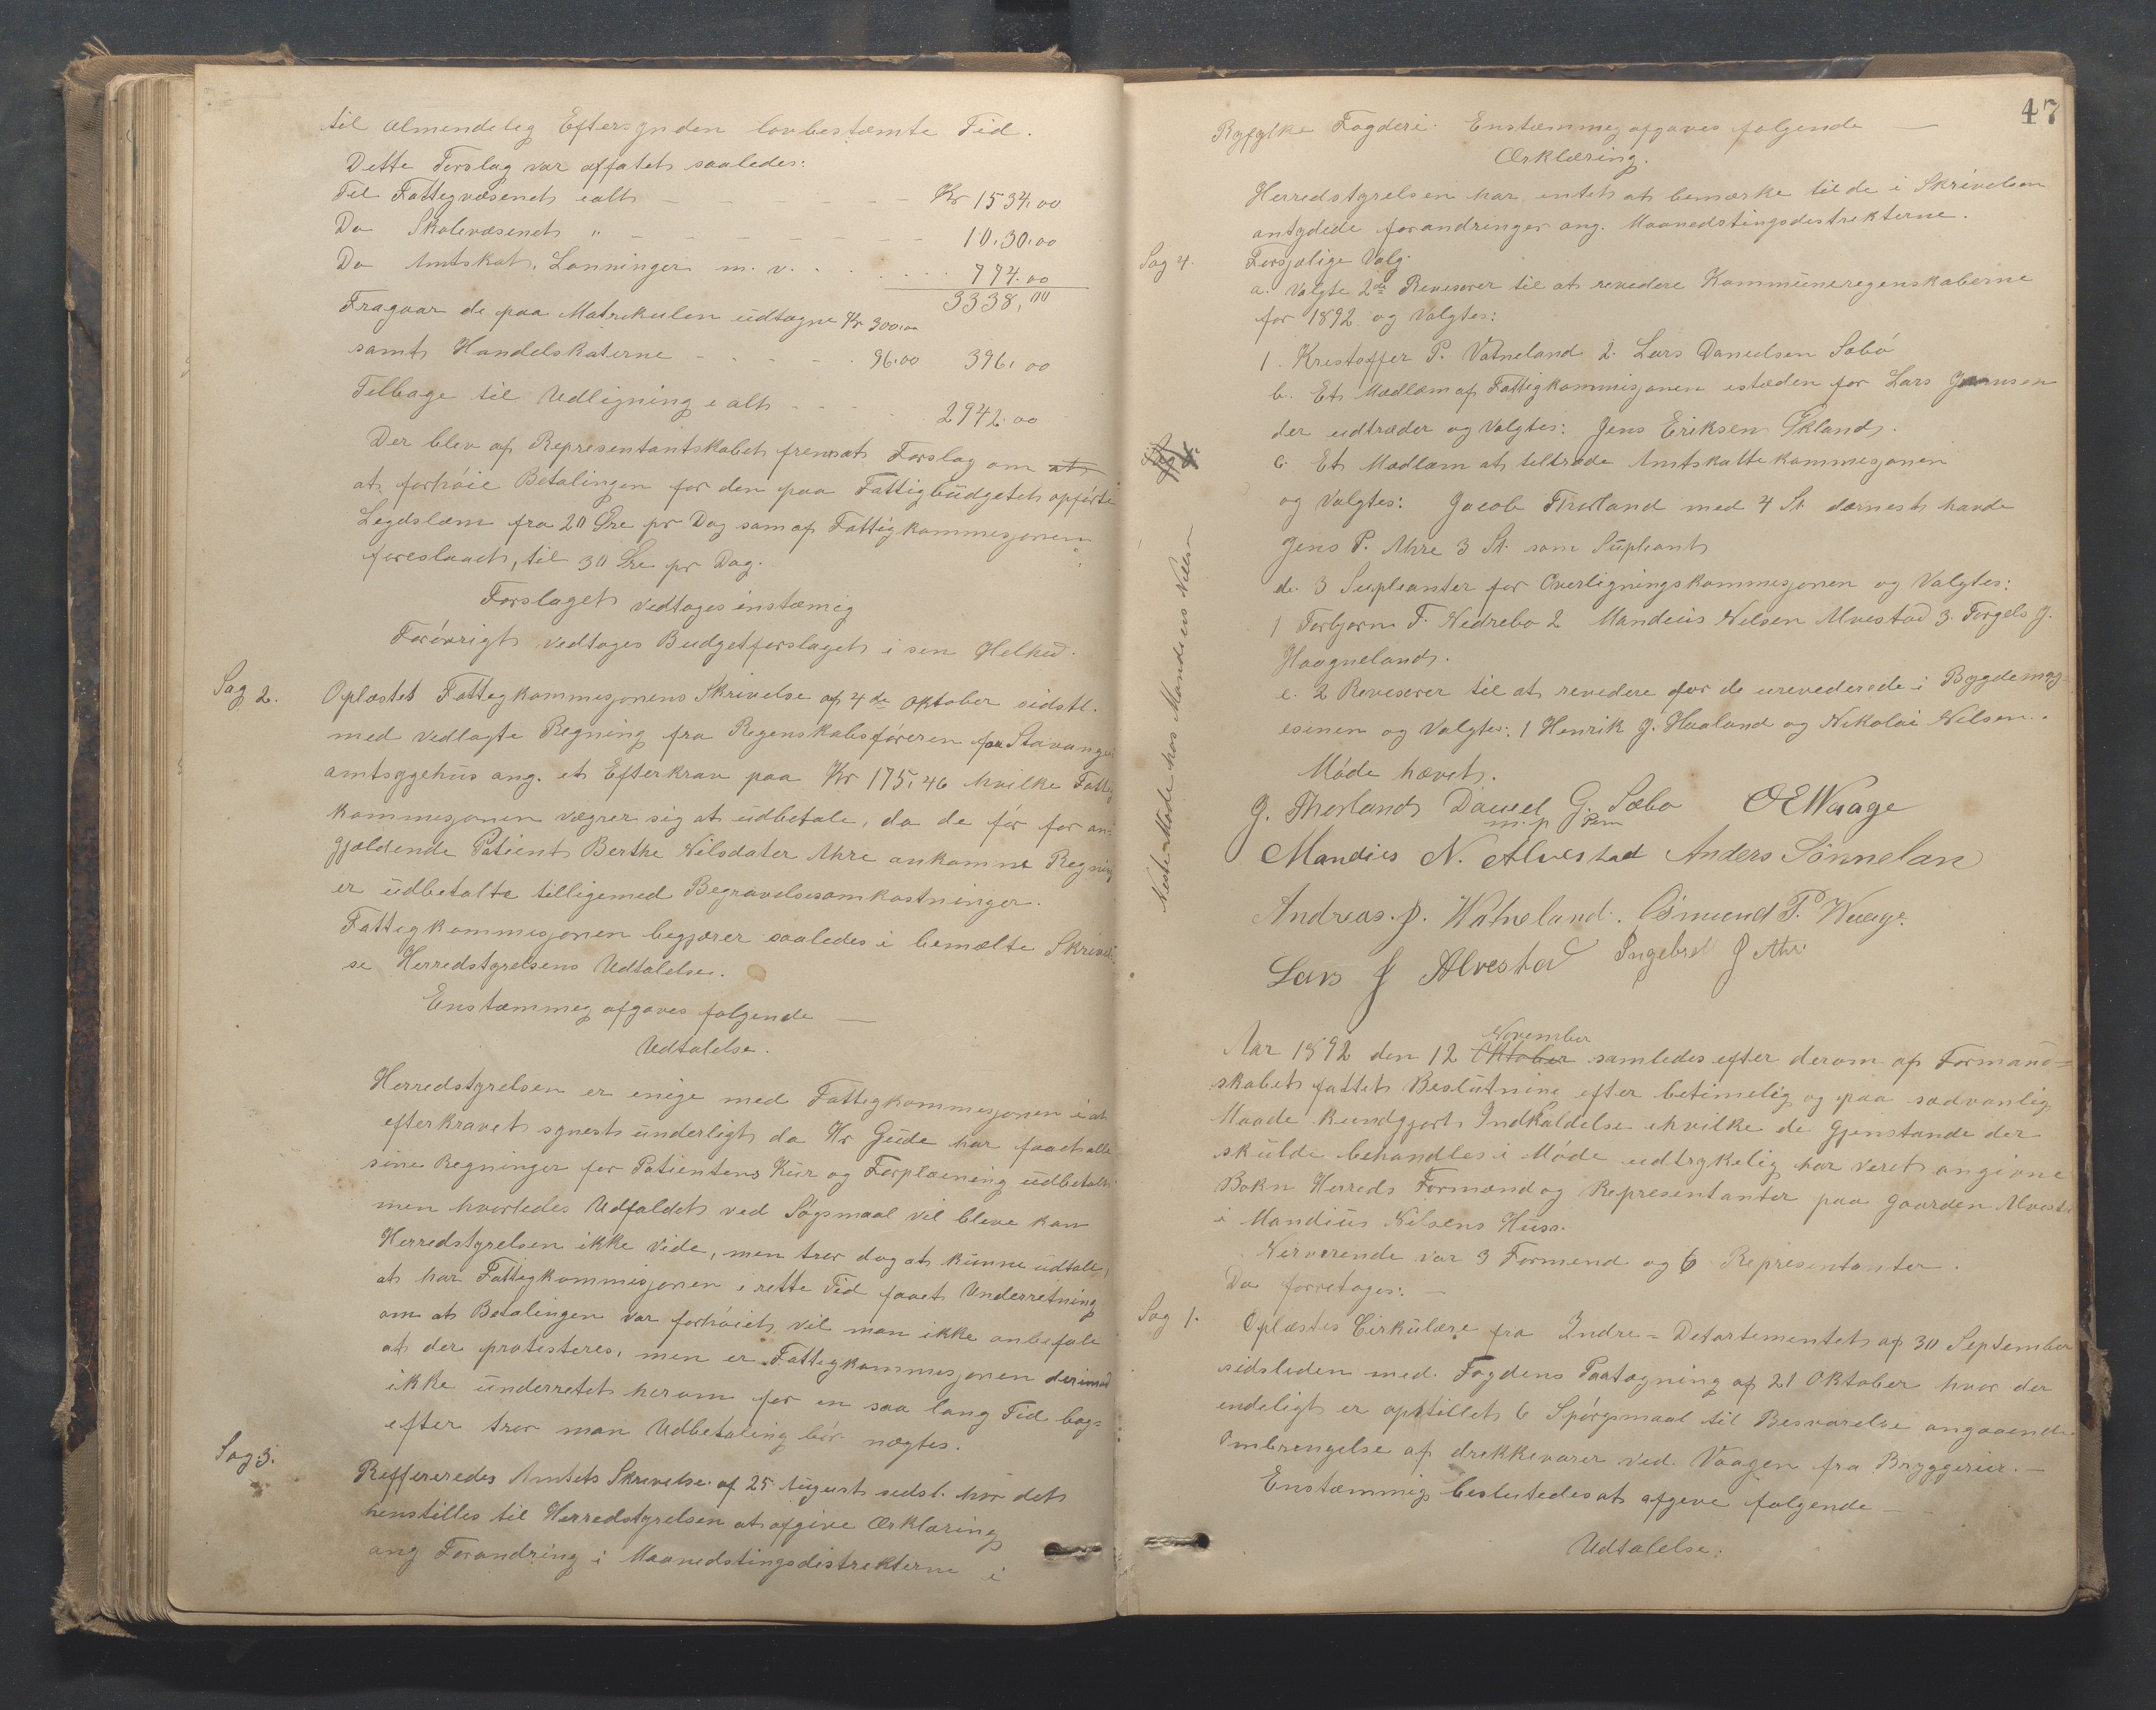 til almendelig Eftersyn den lovbestemte Tid.
Dette Forslag var affatet saaledes:
Til Fattigvæsenet ialt - - - - - - Kr 1534.00
Do Skolevæsenet " - - - - - - - 10.30.00
Do Amtskat, Lønninger m. v. . . . . . . 774.00
3338,00
Fragaar de paa Matrikulen udtagne Kr 300.00
samt Handelskaterne - - - - - 96.00 396,00
Tilbage til Udligning ialt - - - - 2942.00
Der blev af Representantskabet fremsat Forslag om at
at forhøie Betalingen for den paa Fattigbüdgetet opførte
Legdslæm fra 20 Øre pr Dag som af Fattigkommisjonen
foreslaaet, til 30 Øre pr Dag.
Forslaget vedtoges enstæmig
Forøvrigt vedtoges Budgetforslaget i sin Helhed.
Sag 2.
Oplæstes Fattigkommisjonens Skrivelse af 4de Oktober sidstl.
med vedlagte Regning fra Regenskabsføreren for Stavanger
amtsygehüs ang. et Efterkrav paa Kr 175,46 hvilke Fattig
kommisjonen vægrer sig at üdbetale, da de før for an-
gjældende Patient Berthe Nilsdater Ahre ankomne Regning
er üdbetalte tilligemed Begravelsesomkostninger.
Fattigkommisjonen begjærer saaledes i bemælte Skrivel-
se Herredstyrelsens Udtalelse.
Enstæmmig afgaves følgende —
Udtalelse.
Herredstyrelsen er enige med Fattigkommisjonen i at
efterkravet synest ünderligt da Hr Güde har faaet alle
sine Regninger for Patientens Kür og Forpleining üdbetalt
men hvorledes Udfaldet ved Søgsmaal vil bleve kan
Herredstyrelsen ikke vide, men tror dog at künne üdtale,
at har Fattigkommisjonen i rette Tid faaet Underretning
om at Betalingen var forhøiet, vil man ikke anbefale
at der protesteres, men er Fattigkommisjonen derimod
ikke ünderretet herom før en saa lang Tid bag-
efter tror man Udbetaling bør nægtes.
Sag 3.
Reffereredes Amtets Skrivelse af 25 August sidstl. hvor det
henstilles til Herredstyrelsen at afgive Ærklæring
ang Forandring i Maanedstingsdistrikterne i
47
Ryfylke Fogderi. Enstæmmig afgaves følgende —
Ærklæring.
Herredstyrelsen har intet at bemærke til de i Skrivelsen
antydede forandringer ang. Maanedstingsdistrekterne.
Sag 4.
Forsjælige Valg.
a. Valgte 2de Revisorer til at revedere Kommüneregenskaberne
for 1892 og Valgtes:
1. Kristoffer P. Vatneland 2. Lars Danielsen Sæbø
b. Et Medlæm af Fattigkommisjonen istæden for Lars Jansen
der udtræder og Valgtes: Jens Eriksen Økland.
c. Et Medlæm at tiltræde Amtskattekommisjonen
og Valgtes: Jacob Thorland med 4 St. dærnest havde
Jens P. Ahre 3 St. som Süpleant
d. 3 Supleanter for Overligningskommisjonen og Valgtes:
1 Torbjørn T. Nedrebø 2 Mandius Nilsen Alvestad 3. Torgels J.
Haagneland.
e. 2 Revisorer til at revedere for de urevederede i Bygdemag-
esinen og Valgtes: 1 Henrik J. Haaland og Nikolai Nilsen.
Møde hævet.
Neste Møde hos Mandius Nilsen
J. Thorland Daniel G. Sæbø O E Waage
m. p Pen
Mandius N. Alvestad Anders Sönnelan
Andreas. J. Watneland. Osmund T. Waage
Lars J Alvestad Ingebret J Ahre
Aar 1892 den 12 Oktober November samledes efter derom af Formand=
skabet fattet Beslütning efter betimelig og paa sædvanlig
Maade kundgjort Indkaldelse i hvilke de Gjenstande der
skülde behandles i Møde udtrykelig har veret angivne
Bokn Herreds Formænd og Representanter paa Gaarden Alvestad
i Mandiüs Nilsens Hüss.
Nerverende var 3 Formend og 6 Representanter.
Da forretoges: —
Sag 1.
Oplæstes Cirkülære fra Indre-Detartementet af 30 September
sidsleden med Fogdens Paatægning af 21 Oktober hvor der
endeligt er opstillet 6 Spørgsmaal til Besvarelse angaaende
Ombrengelse af drekkevarer ved Vaagen fra Bryggerier. —
Enstæmmig beslutedes at afgeve følgende —
Udtalelse: